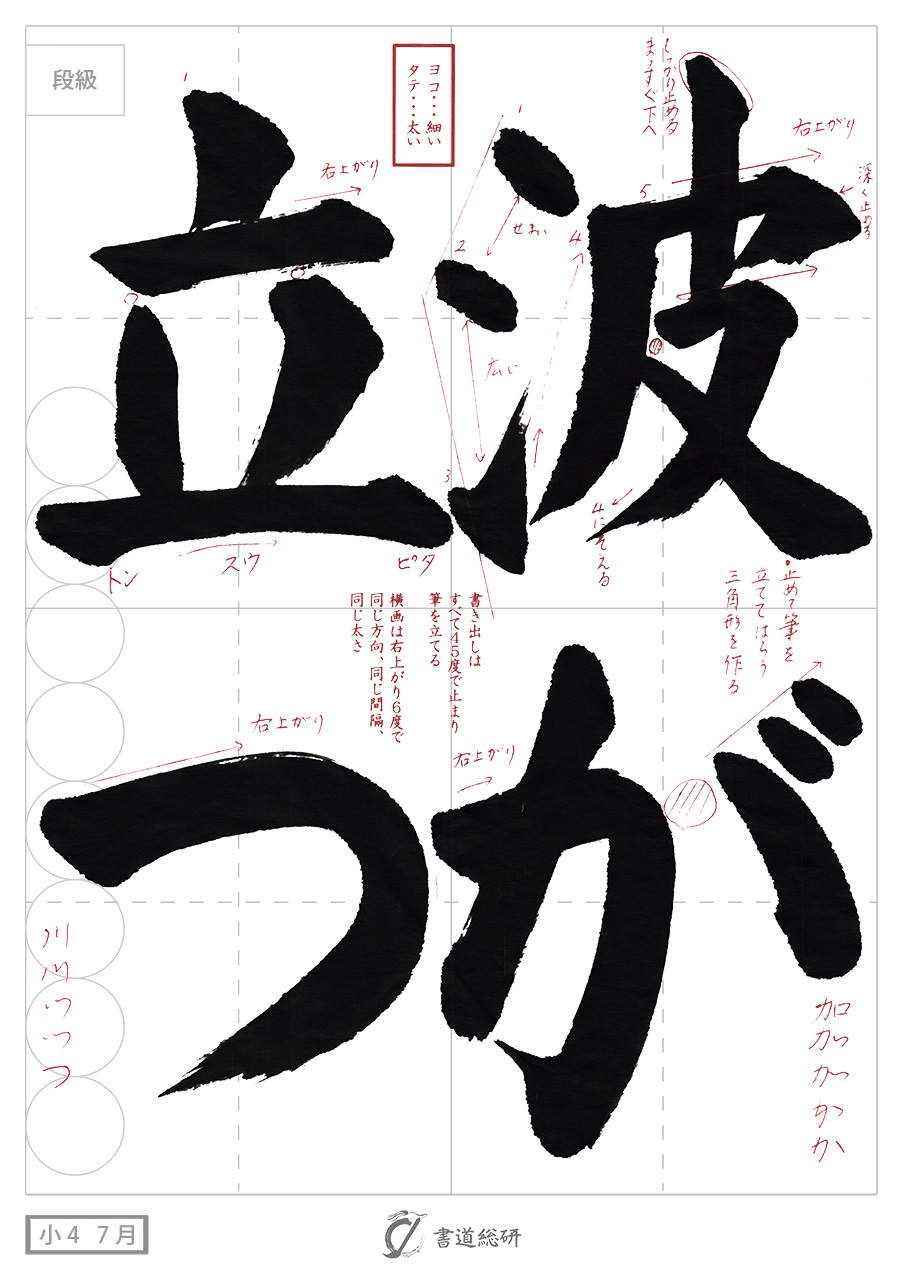 段級
波が
立つ
ヨコ・・・細い
タテ・・・太い
しっかり止める
まっすぐ下へ
右上がり
深く止める
5
1
せまい
2
4
広い
3
4にそえる
1
右上がり
トン
スウ
ピタ
・止めて筆を
立ててはらう
三角形を作る
書き出しは
すべて45度で止まり
筆を立てる
横画は右上がり6度で
同じ方向、同じ間隔、
同じ太さ
右上がり
右上がり
加
か
川
つ
小4 7月
書道総研